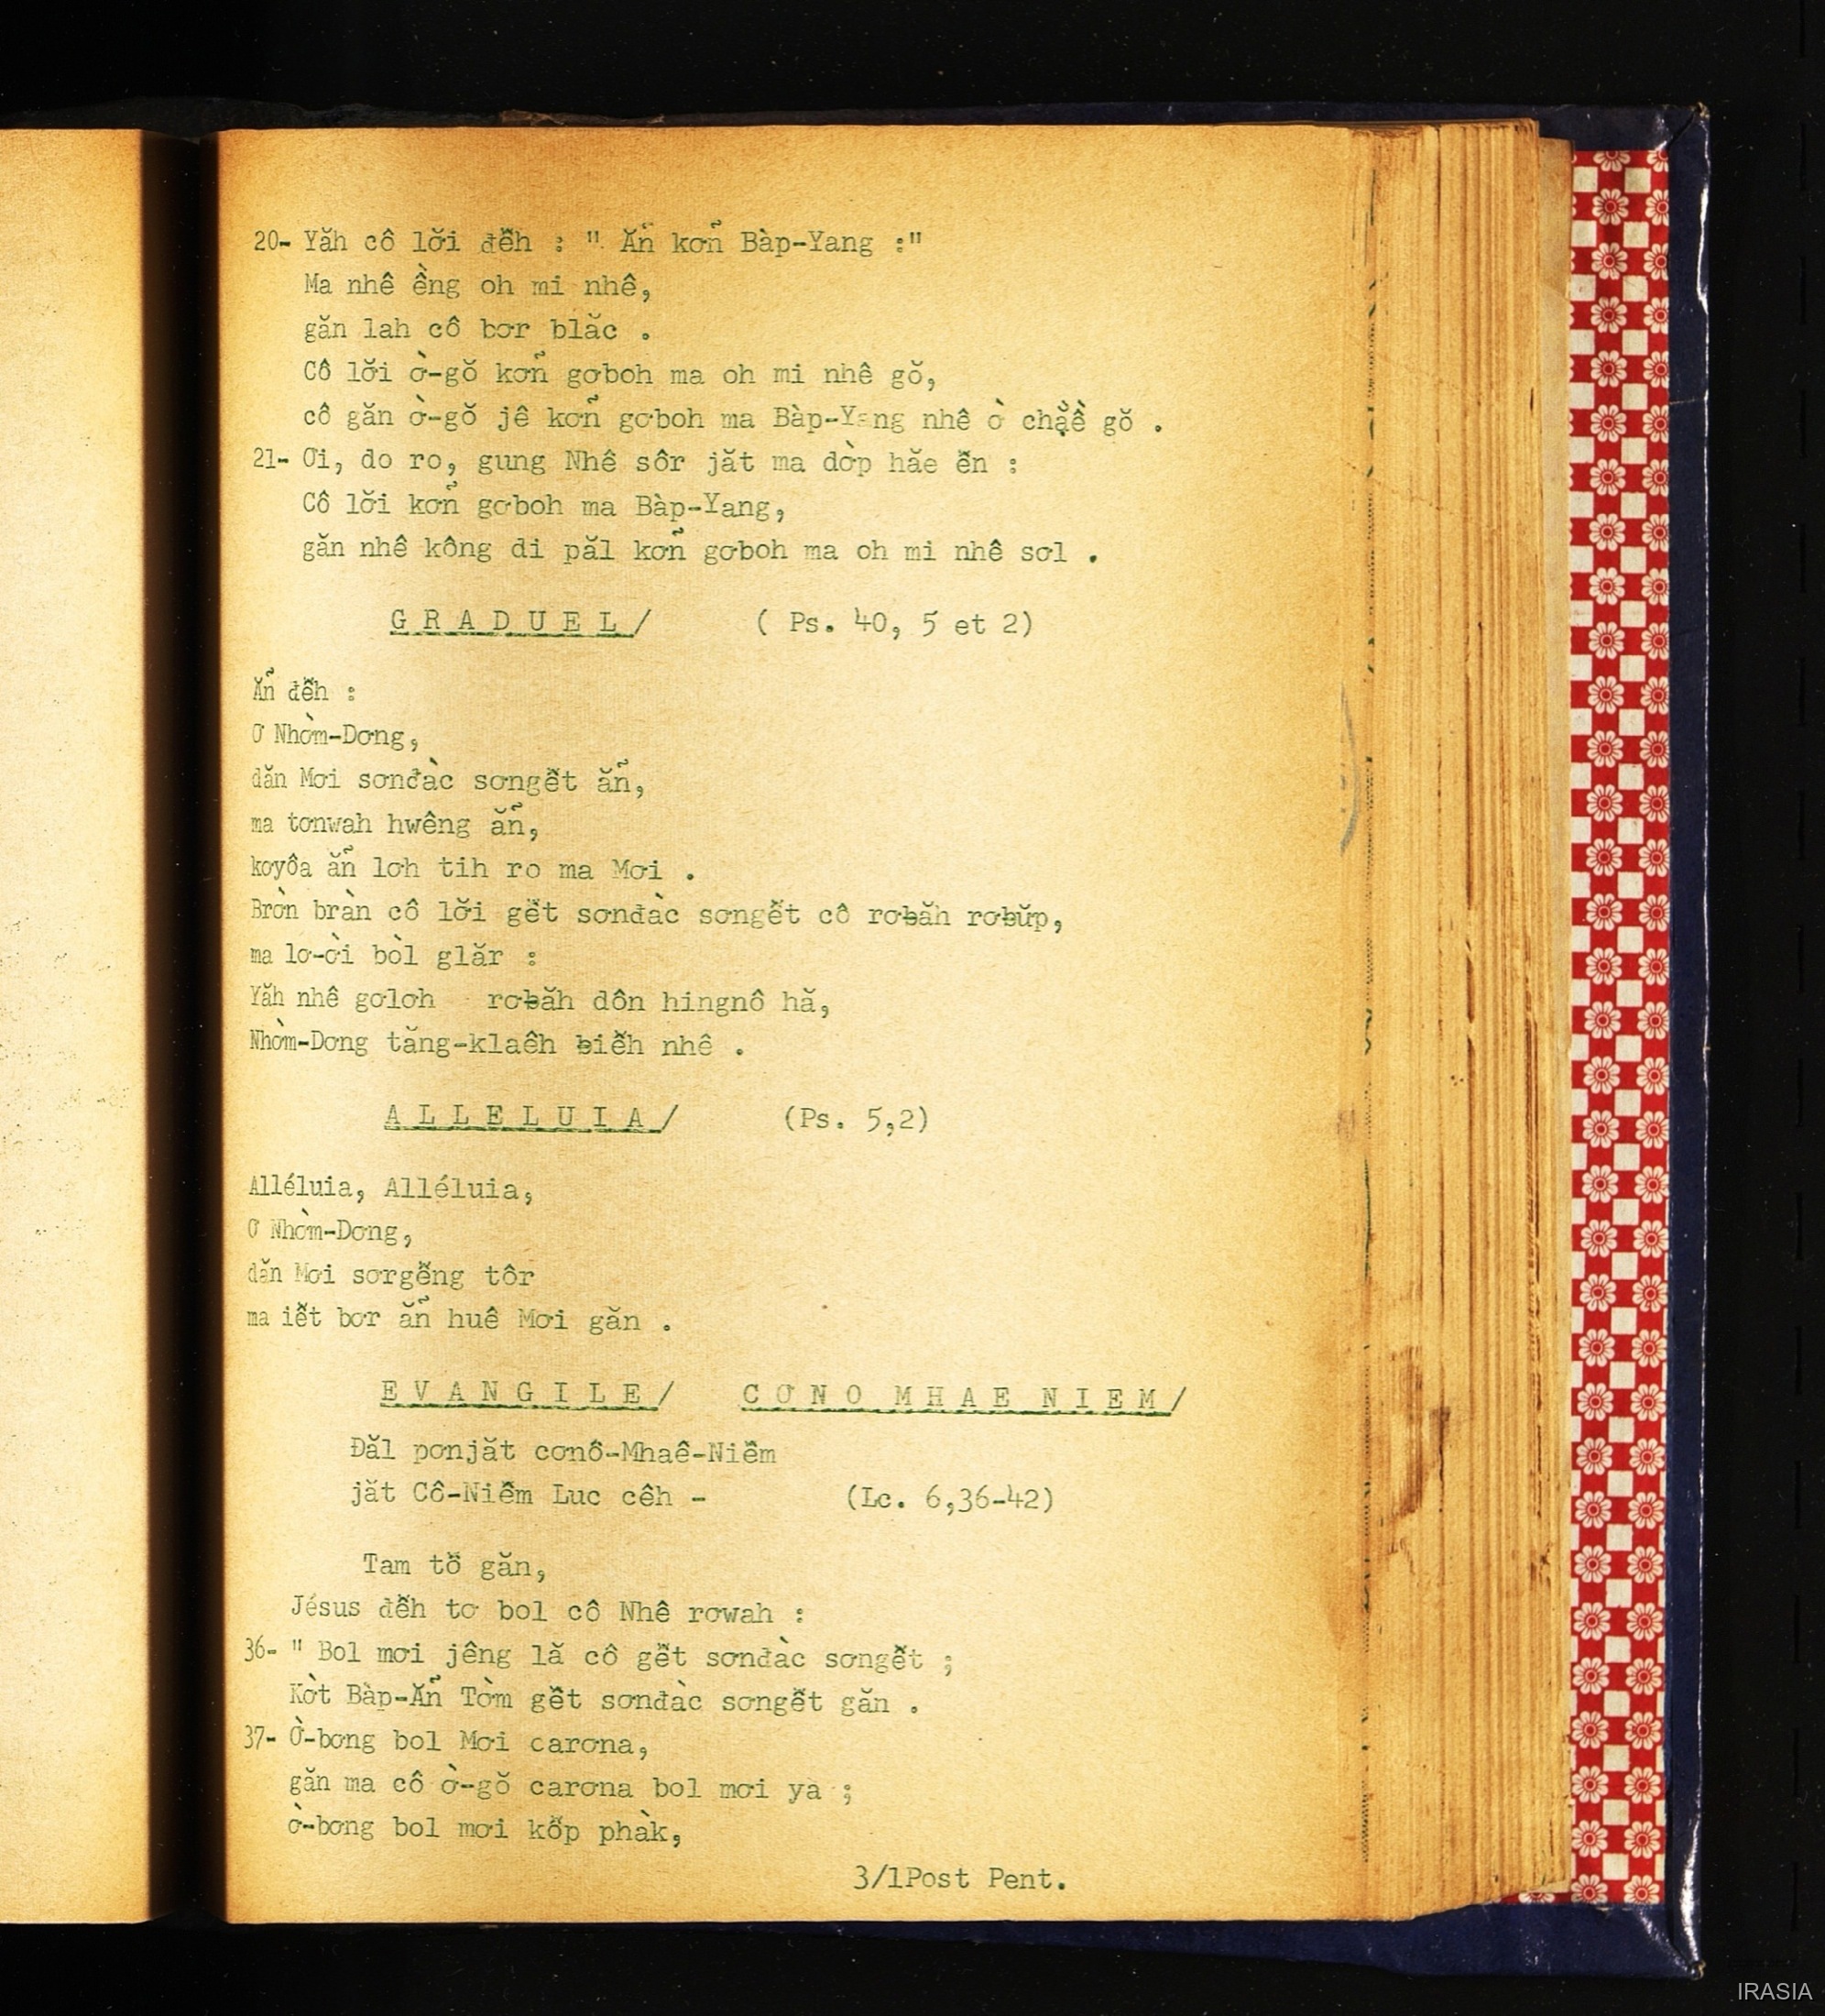 20- Yăh cô lơ̆i đê̆h : " Ăn̉ kơn̉ Bàp-Yang :"
Ma nhê ềng oh mi nhê,
găn lah cô bơr blăc .
Cô lơ̆i ờ-gŏ kơn̉ gơboh ma oh mi nhê gŏ,
cô găn ờ-gŏ jê kơn̉ gơboh ma Bàp-Yang nhê ờ gŏ .
21- Ơi, do ro, gung Nhê sôr jăt ma dờp hăe ê̆n :
Cô lơ̆i kơn̉ gơboh ma Bàp-Yang,
găn nhê kông di păl kơn̉ gơboh ma oh mi nhê sơl .
G R A D U E L / ( Ps. 40, 5 et 2)
Ăn̉ đê̆h :
Ơ Nhờm-Dơng,
dăn Mơi sơnđàc sơngê̆t ăn̉,
ma tơnwah hwêng ăn̉,
kơyôa ăn̉ lơh tih ro ma Mơi .
Bròn bràn cô lơ̆i gê̆t sơnđàc sơngê̆t cô rơƀăh rơƀŭp,
ma lơ-ời bòl glăr :
Yăh nhê gơlơh rơƀăh dôn hingnô hă,
Nhờm-Dơng tăng-klaêh ƀiê̆h nhê .
A L L E L U I A / (Ps. 5,2)
Alléluia, Alléluia,
Ơ Nhờm-Dơng,
dăn Mơi sơrgê̆ng tôr
ma iê̆t bơr ăn̉ huê Mơi găn .
E V A N G I L E / C Ơ N O M H A E N I E M /
Đăl pơnjăt cơnô̆-Mhaê-Niê̆m
jăt Cô-Niê̆m Luc cêh - (Lc. 6,36-42)
Tam tô̆ găn,
Jésus đê̆h tơ bol cô Nhê rơwah :
36- " Bol mơi jêng lă cô gê̆t sơnđàc sơngê̆t ;
Kòt Bàp-Ăn̉ Tòm gê̆t sơnđàc sơngê̆t găn .
37- Ờ-bơng bol Mơi carơna,
găn ma cô ờ-gŏ carơna bol mơi ya ;
ờ-bơng bol mơi kô̆p phàk,
3/1Post Pent.
IRASIA